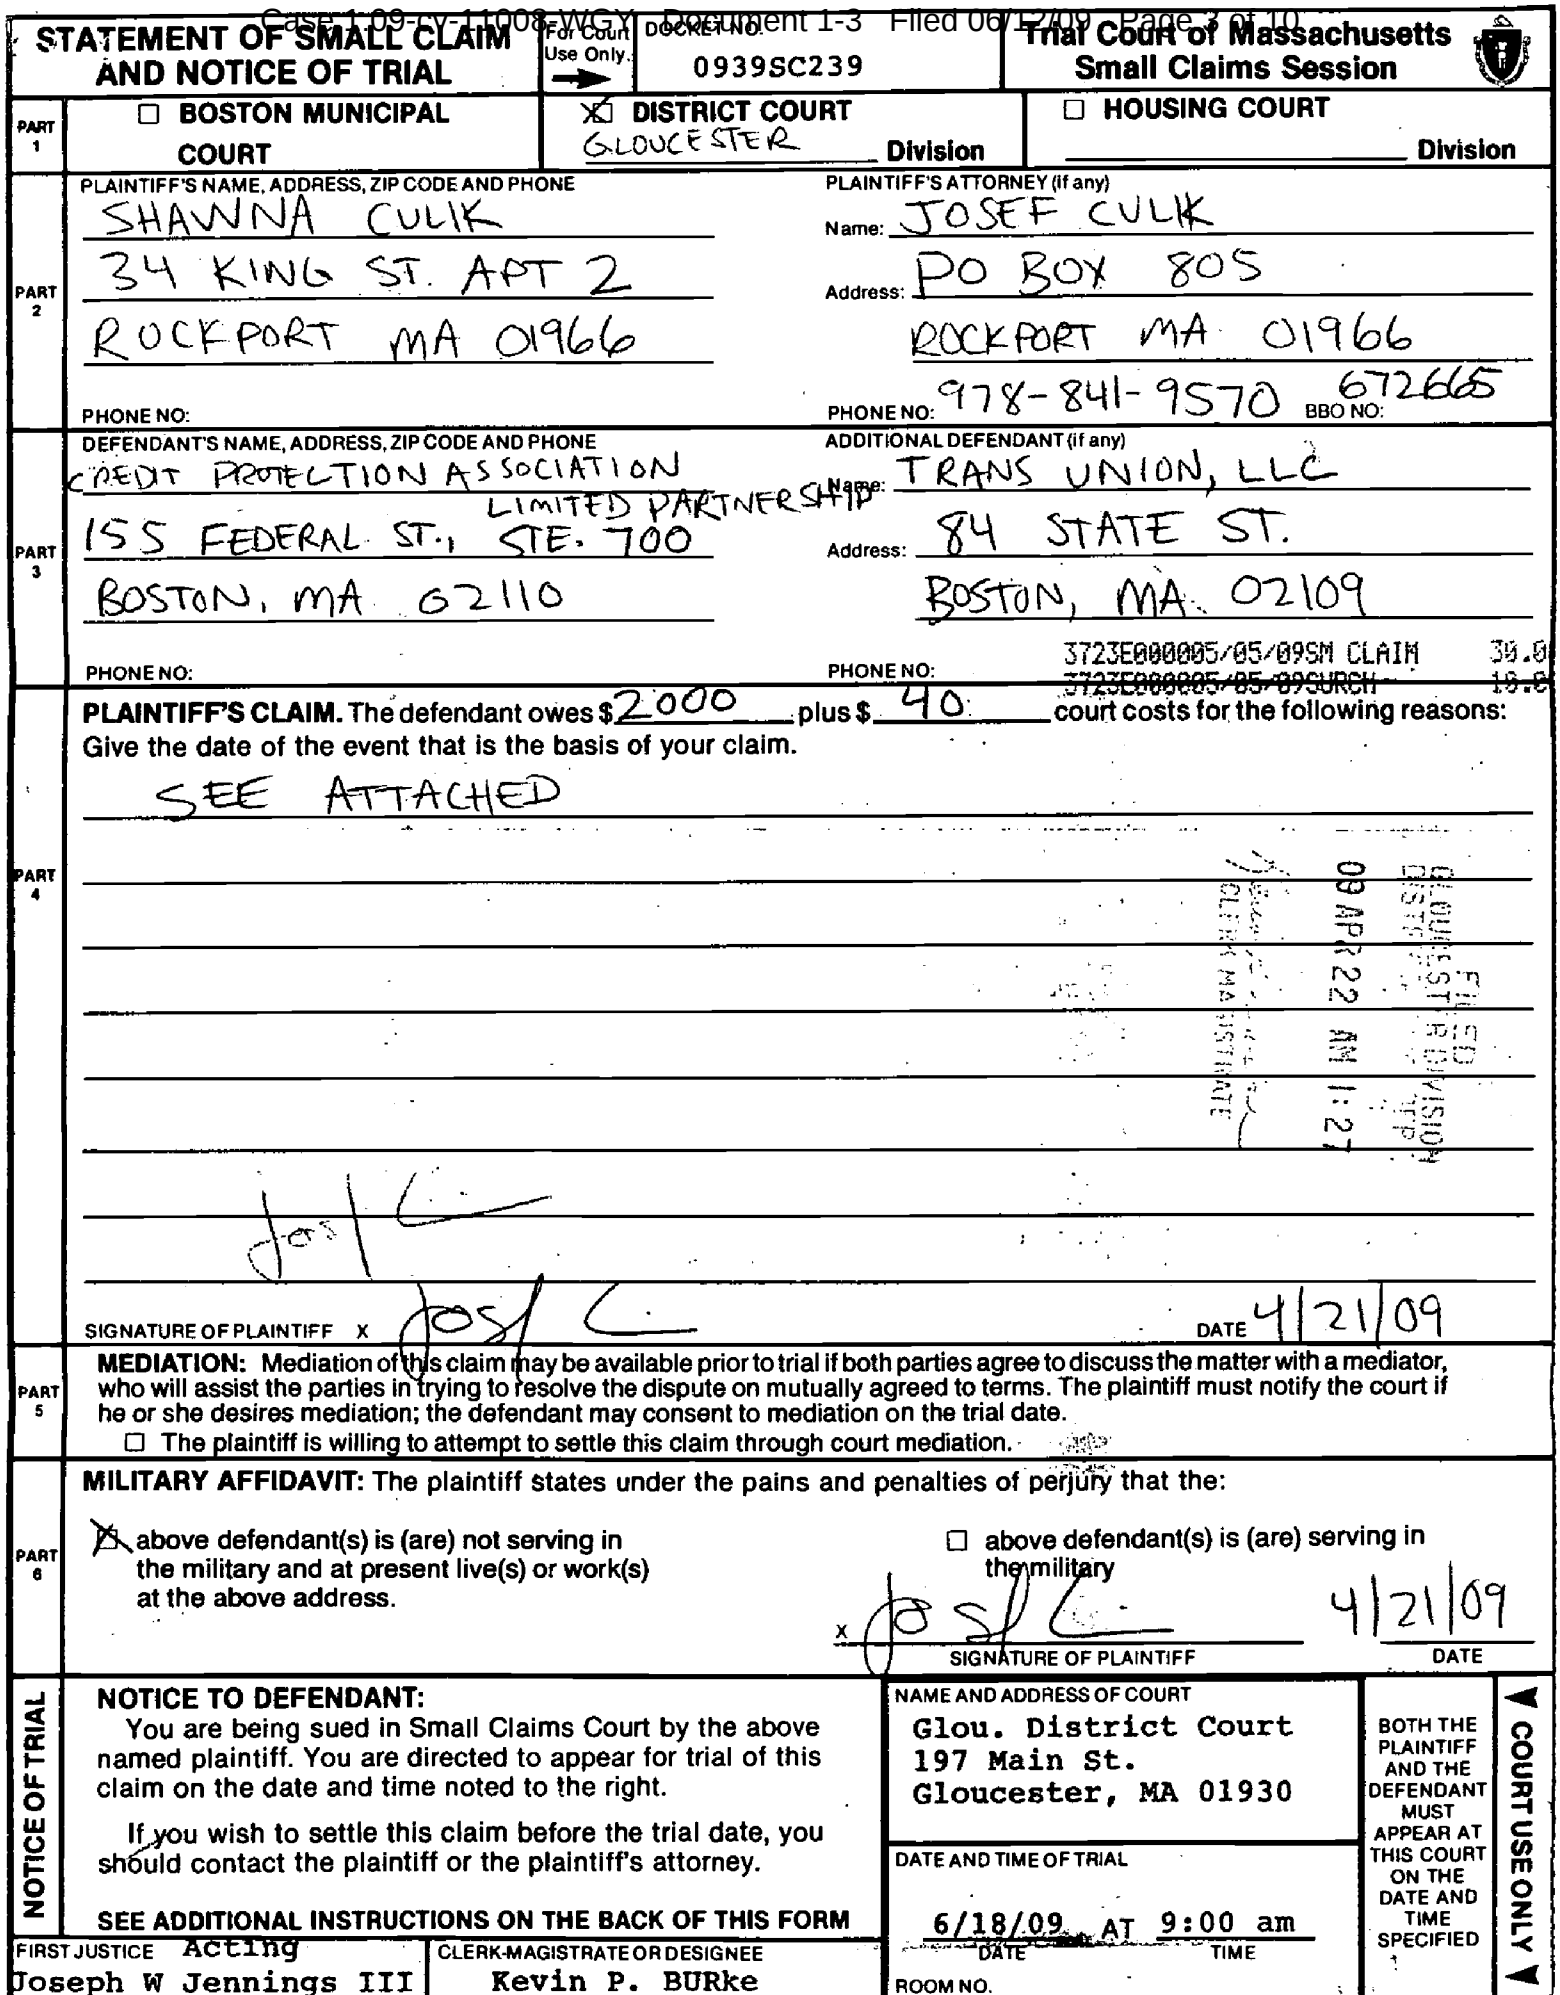 Case 1:09-cv-11008-WGY Document 1-3 Filed 06/12/09 Page 3 of 10
STATEMENT OF SMALL CLAIM
AND NOTICE OF TRIAL
For Court
Use Only
DOCKET NO.
0939SC239
Trial Court of Massachusetts
Small Claims Session
PART
1
☐ BOSTON MUNICIPAL
COURT
☒ DISTRICT COURT
GLOUCESTER Division
☐ HOUSING COURT
Division
PART
2
PLAINTIFF'S NAME, ADDRESS, ZIP CODE AND PHONE
SHAWNA CULIK
34 KING ST. APT 2
ROCKPORT MA 01966
PHONE NO:
PLAINTIFF'S ATTORNEY (if any)
Name: JOSEF CULIK
Address: PO BOX 805
ROCKPORT MA 01966
PHONE NO: 978-841-9570 BBO NO: 672665
PART
3
DEFENDANT'S NAME, ADDRESS, ZIP CODE AND PHONE
CREDIT PROTECTION ASSOCIATION
LIMITED PARTNERSHIP
155 FEDERAL ST., STE. 700
BOSTON, MA 02110
PHONE NO:
ADDITIONAL DEFENDANT (if any)
Name: TRANS UNION, LLC
Address: 84 STATE ST.
BOSTON, MA. 02109
PHONE NO:
3723E000005/05/09SM CLAIM 30.0
3723E000005/05/09SURCH 10.0
PART
4
PLAINTIFF'S CLAIM. The defendant owes $ 2000 plus $ 40 court costs for the following reasons:
Give the date of the event that is the basis of your claim.
SEE ATTACHED
FILED
GLOUCESTER DIVISION
09 APR 22 AM 1:27
CLERK MAGISTRATE
SIGNATURE OF PLAINTIFF X
DATE 4/21/09
PART
5
MEDIATION: Mediation of this claim may be available prior to trial if both parties agree to discuss the matter with a mediator,
who will assist the parties in trying to resolve the dispute on mutually agreed to terms. The plaintiff must notify the court if
he or she desires mediation; the defendant may consent to mediation on the trial date.
☐ The plaintiff is willing to attempt to settle this claim through court mediation.
PART
6
MILITARY AFFIDAVIT: The plaintiff states under the pains and penalties of perjury that the:
☒ above defendant(s) is (are) not serving in
the military and at present live(s) or work(s)
at the above address.
☐ above defendant(s) is (are) serving in
the military
X
SIGNATURE OF PLAINTIFF
4/21/09
DATE
NOTICE OF TRIAL
NOTICE TO DEFENDANT:
You are being sued in Small Claims Court by the above
named plaintiff. You are directed to appear for trial of this
claim on the date and time noted to the right.
If you wish to settle this claim before the trial date, you
should contact the plaintiff or the plaintiff's attorney.
SEE ADDITIONAL INSTRUCTIONS ON THE BACK OF THIS FORM
NAME AND ADDRESS OF COURT
Glou. District Court
197 Main St.
Gloucester, MA 01930
DATE AND TIME OF TRIAL
6/18/09 AT 9:00 am
DATE TIME
ROOM NO.
BOTH THE
PLAINTIFF
AND THE
DEFENDANT
MUST
APPEAR AT
THIS COURT
ON THE
DATE AND
TIME
SPECIFIED
COURT USE ONLY
FIRST JUSTICE Acting
Joseph W Jennings III
CLERK-MAGISTRATE OR DESIGNEE
Kevin P. BURke